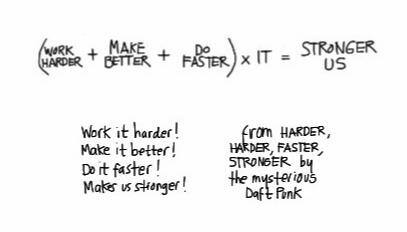 (WORK HARDER + MAKE BETTER + DO FASTER) × IT = STRONGER US
Work it harder!
Make it better!
Do it faster!
Makes us stronger!
from HARDER,
HARDER, FASTER,
STRONGER by
the mysterious
Daft Punk